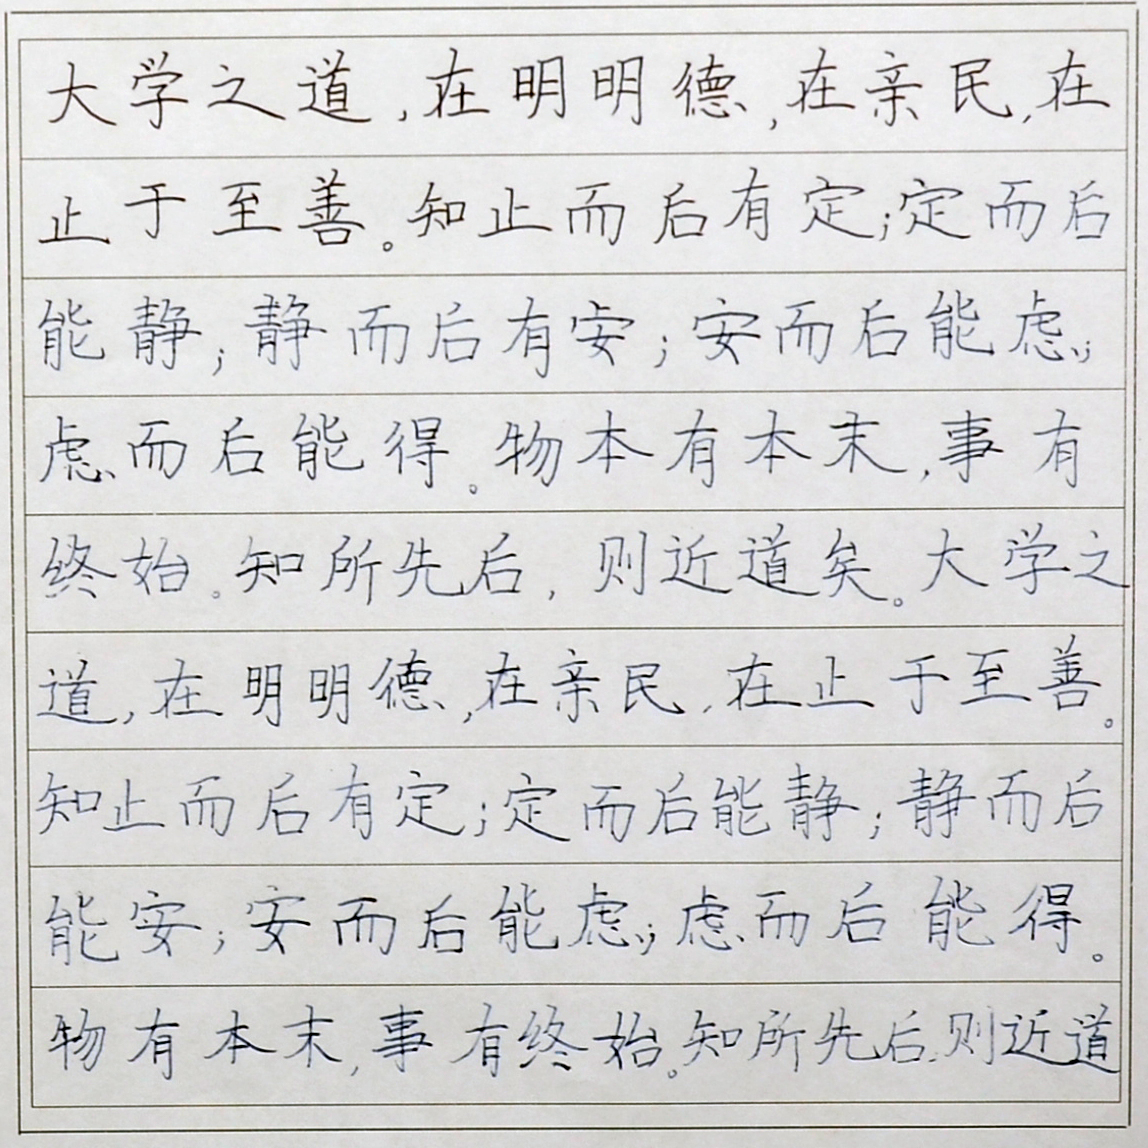 大学之道,在明明德,在亲民,在
止于至善。知止而后有定;定而后
能静;静而后有安;安而后能虑;
虑而后能得。物本有本末,事有
终始。知所先后,则近道矣。大学之
道,在明明德,在亲民,在止于至善。
知止而后有定;定而后能静;静而后
能安;安而后能虑;虑而后能得。
物有本末,事有终始。知所先后,则近道